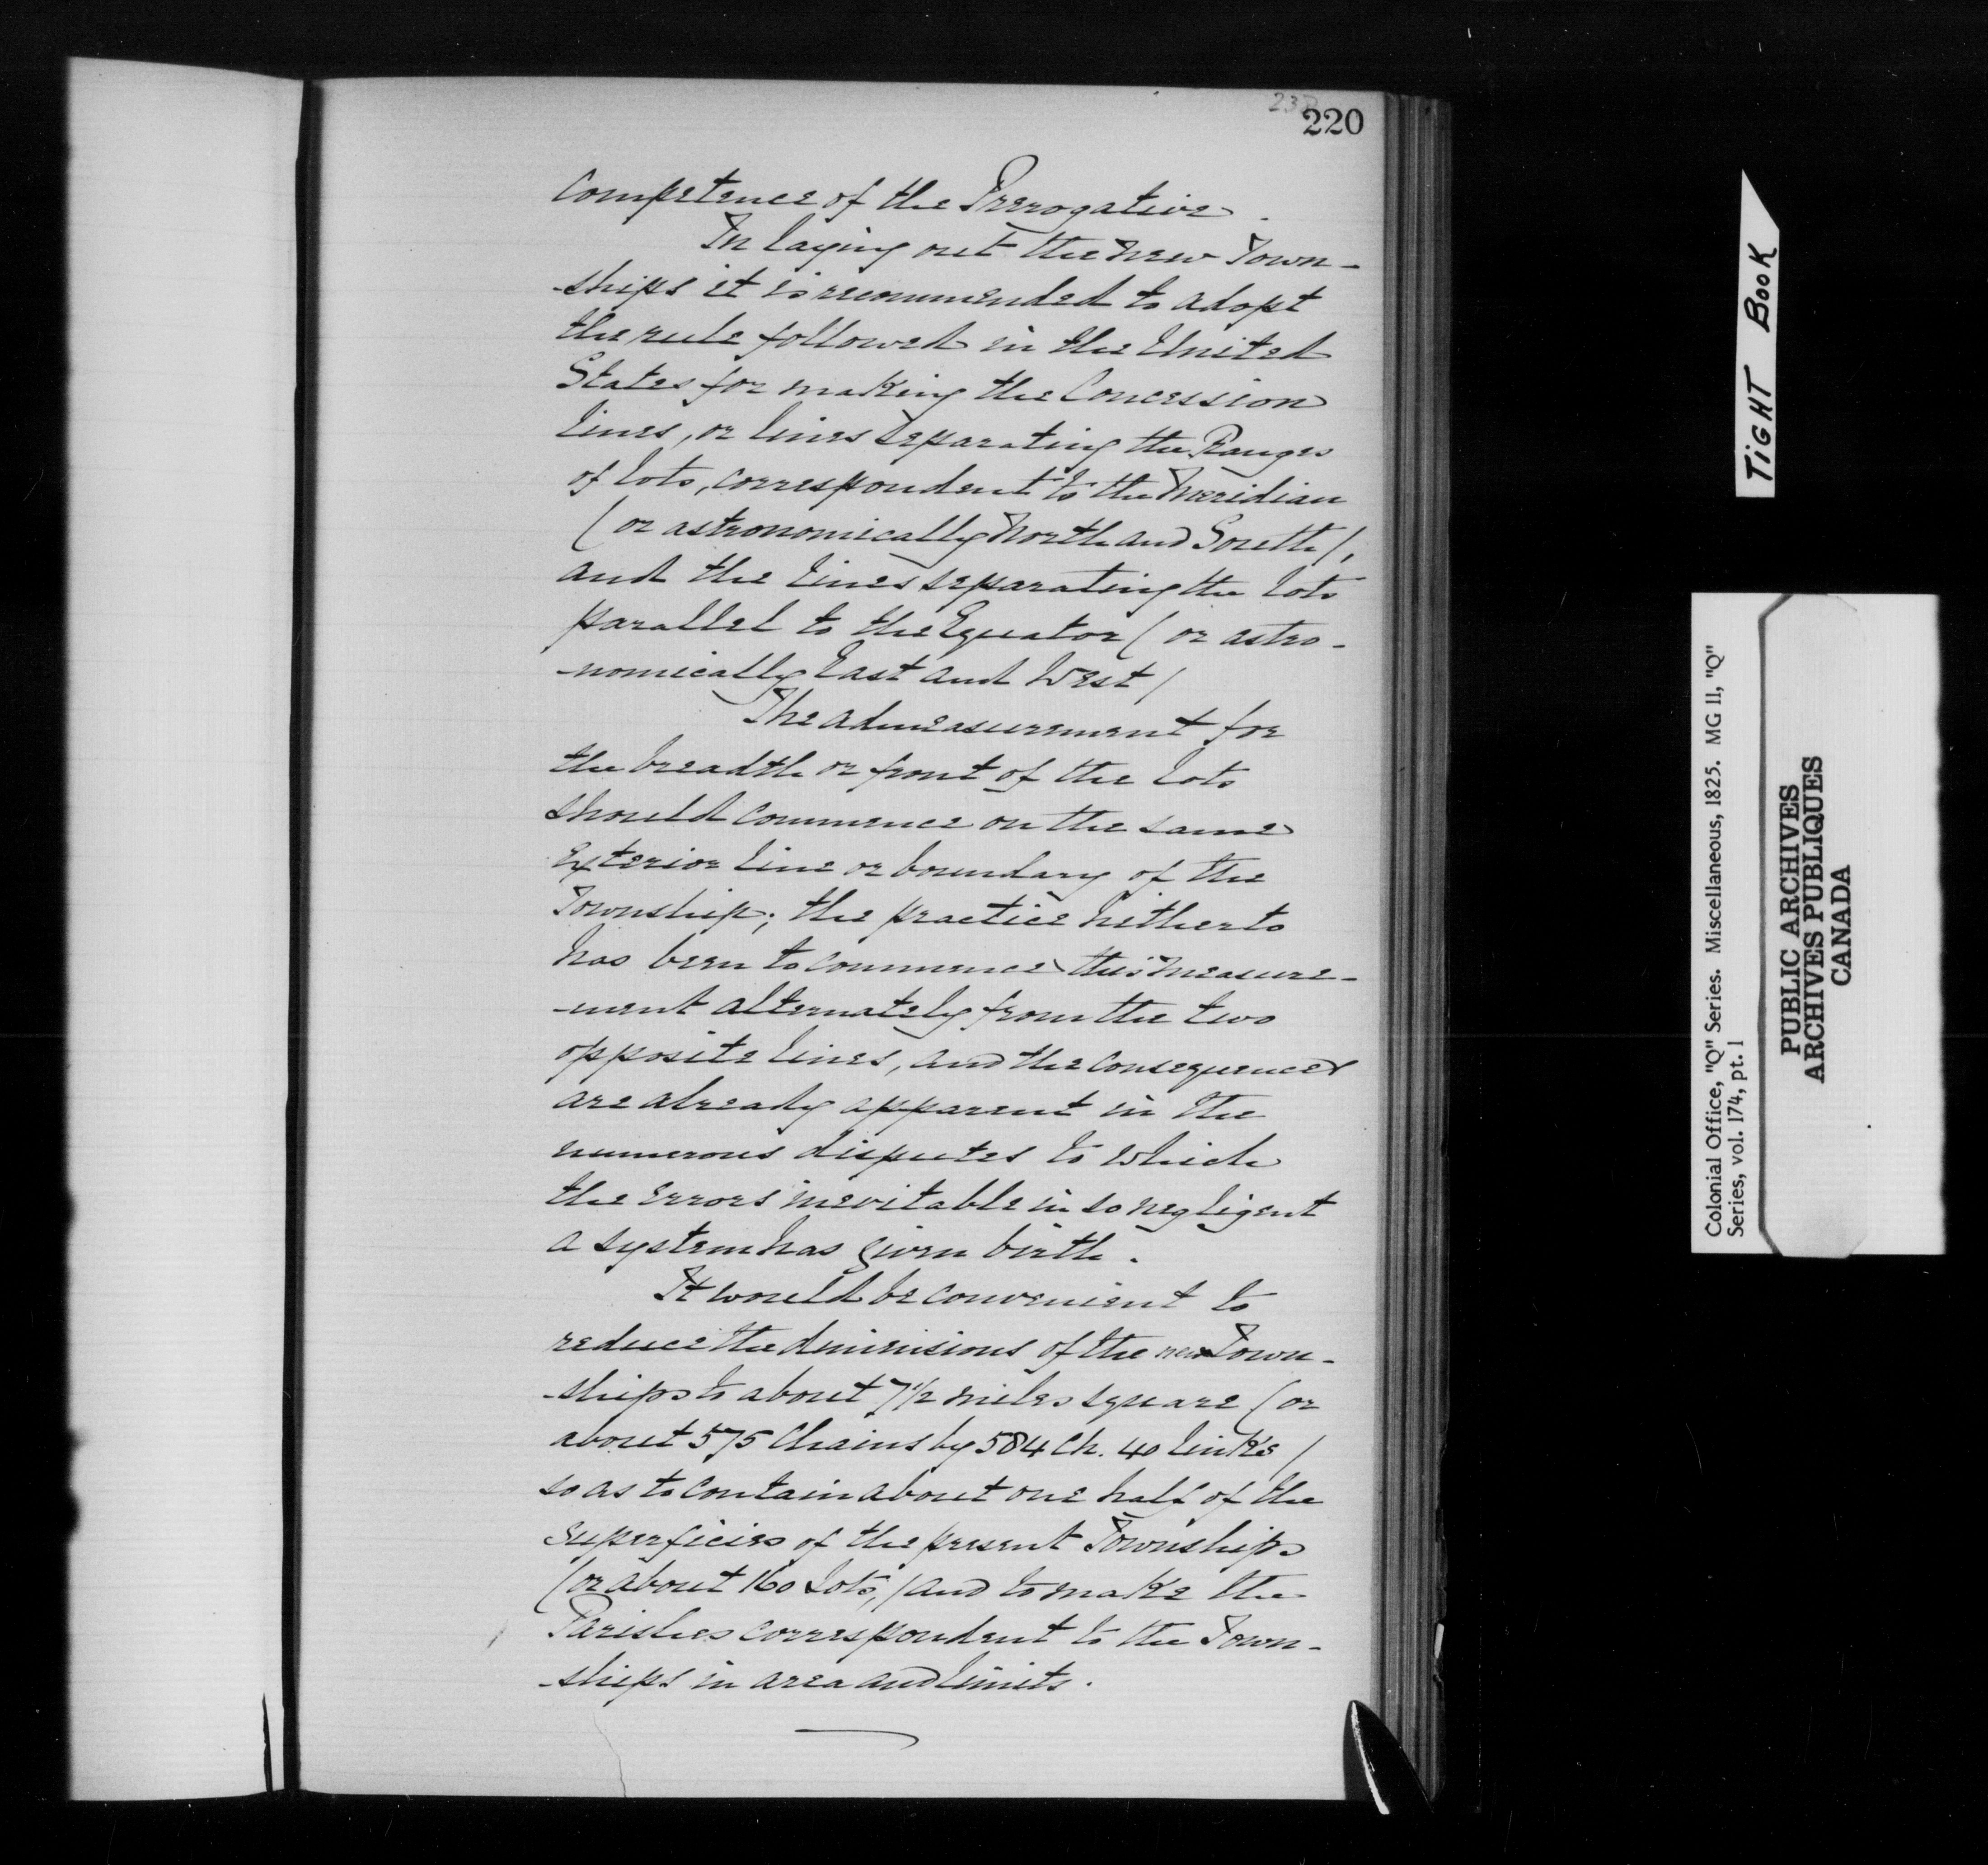 220
Competence of the Prerogative.
In laying out the new Town-
-ships it is recommended to adopt
the rule followed in the United
States for making the Concession
lines, or lines separating the Ranges
of lots, correspondent to the Meridian
(or astronomically North and South),
and the lines separating the lots
parallel to the Equator (or astro-
-nomically East and West)
The admeasurement for
the breadth or front of the lots
should commence on the same
Exterior line or boundary of the
Township; the practice hitherto
has been to commence this measure-
-ment alternately from the two
opposite lines, and the consequences
are already apparent in the
numerous disputes to which
the errors inevitable in so negligent
a system has given birth.
It would be convenient to
reduce the dimensions of the new Town-
-ships to about 7 1/2 miles square (or
about 575 Chains by 584 Ch. 40 links)
so as to contain about one half of the
superficies of the present Townships
(or about 160 Lots,) and to make the
Parishes correspondent to the Town-
-ships in area and limits.
TIGHT BOOK
Colonial Office, "Q" Series. Miscellaneous, 1825. MG 11, "Q"
Series, vol. 174, pt. 1
PUBLIC ARCHIVES
ARCHIVES PUBLIQUES
CANADA